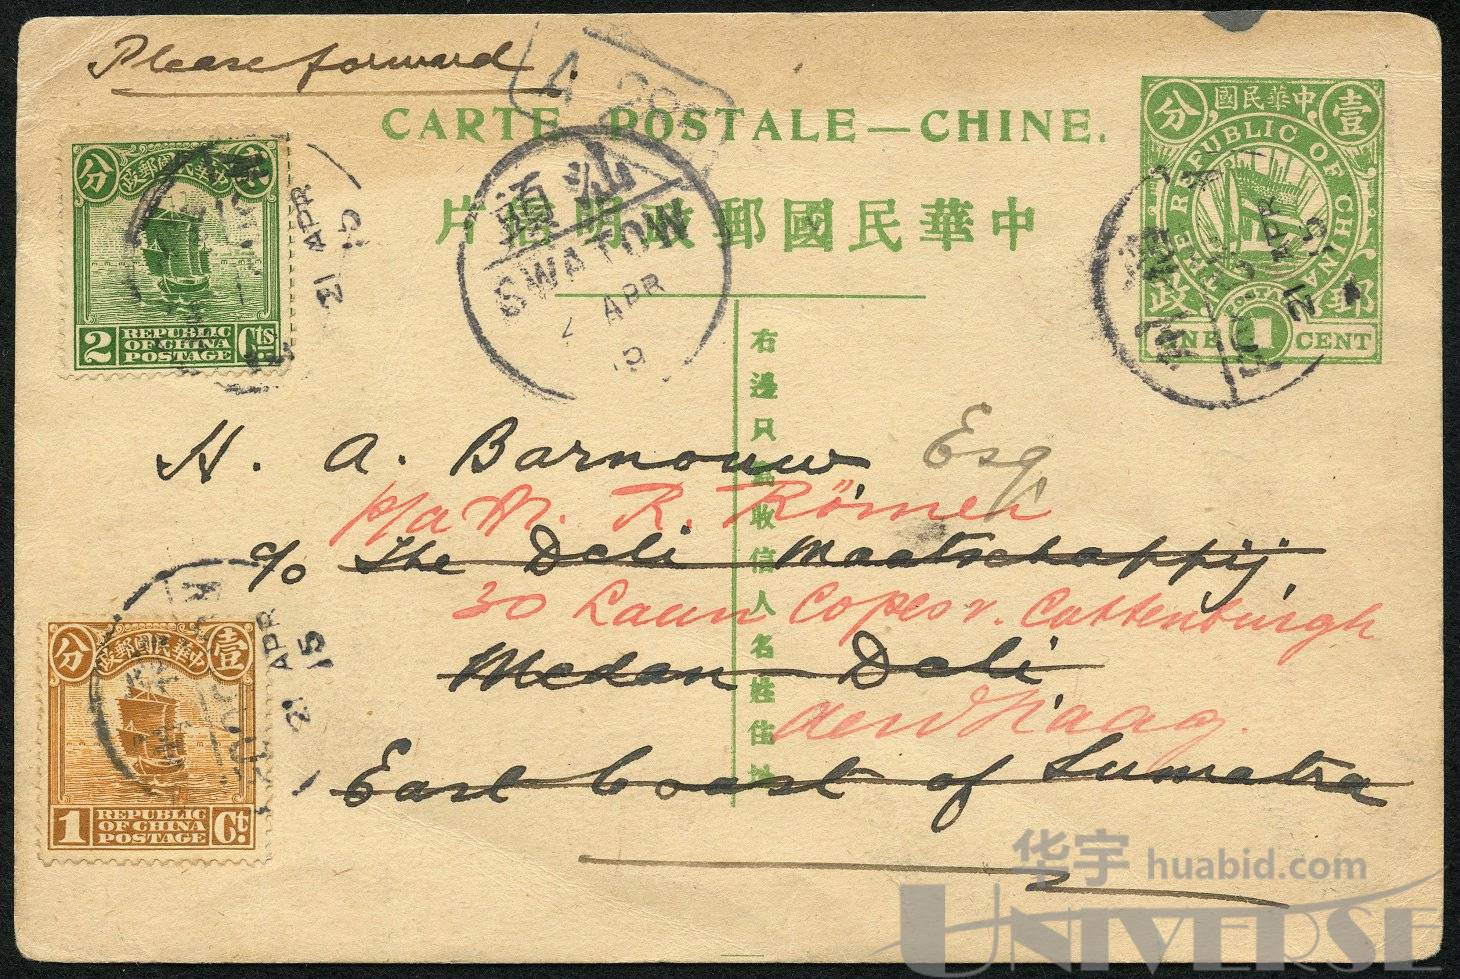 Please forward.
CARTE POSTALE—CHINE.
片信明政郵國民華中
分 國民華中 壹
THE REPUBLIC OF CHINA
政 POSTAGE 郵
ONE 1 CENT
分 政郵國民華中
2 REPUBLIC OF CHINA POSTAGE Cts
21 APR 15
汕頭
SWATOW
APR
21 APR 15
右邊只爲收信人名姓住址
H. A. Barnouw Esq
p/a M. R. Römer
c/o The Deli Maatschappij,
30 Laan Copes v. Cattenburgh
Medan-Deli,
den Haag.
East Coast of Sumatra
21 APR 15
分 政郵國民華中 壹
1 REPUBLIC OF CHINA POSTAGE Ct.
华宇 huabid.com
UNIVERSE